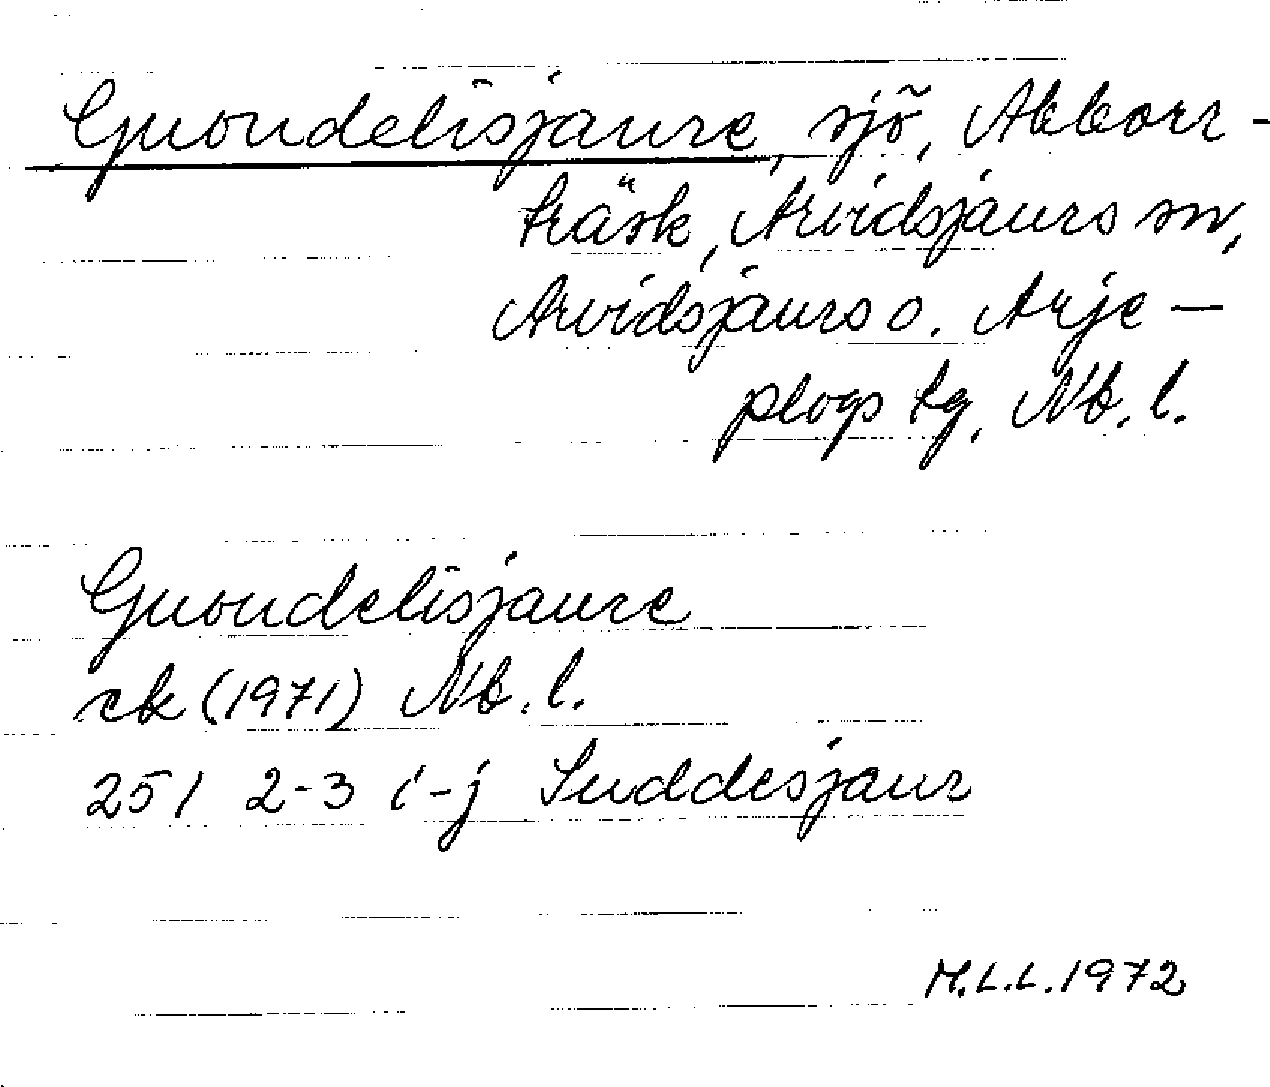 Guoudelisjaure, sjö, Abborr-
träsk, Arvidsjaurs sn,
Arvidsjaurs o. Arje-
plogs tg, Nb. l.
Guoudelisjaure
ek (1971) Nb. l.
25 I 2-3 i-j Suddesjaur
M.L.L. 1972